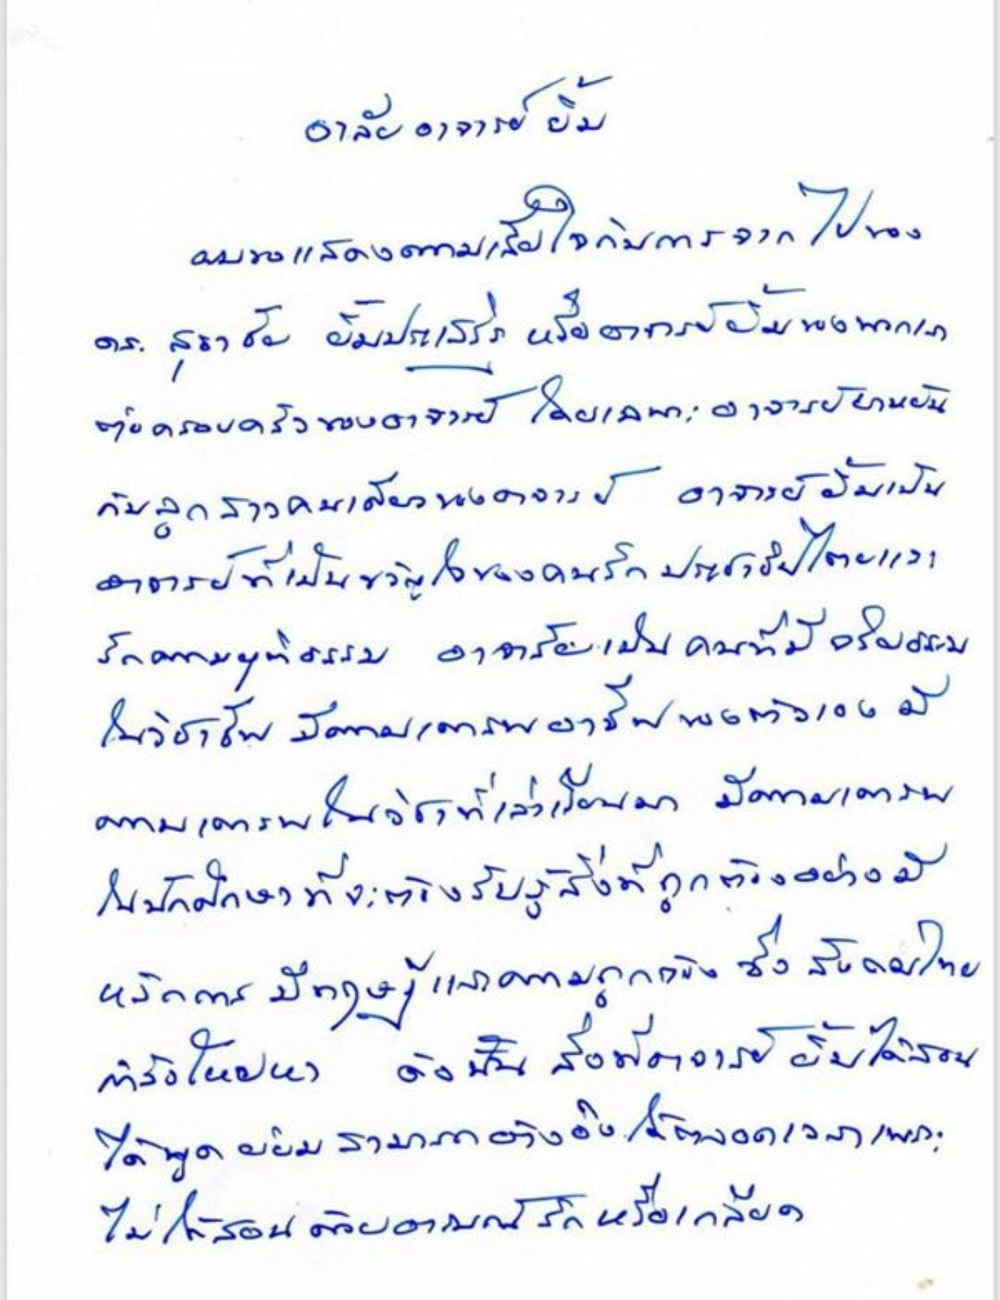 อาลัยอาจารย์ยิ้ม
ผมขอแสดงความเสียใจกับการจากไปของ
ดร. สุธาชัย ยิ้มประเสริฐ หรืออาจารย์ยิ้มของพวกเรา
ต่อครอบครัวของอาจารย์ โดยเฉพาะอาจารย์
กับลูกสาวคนเดียวของอาจารย์ อาจารย์ยิ้มเป็น
อาจารย์ที่เป็นขวัญใจของคนรักประชาธิปไตยและ
รักความยุติธรรม อาจารย์เป็นคนที่มีจริยธรรม
ในวิชาชีพ มีความเคารพอาชีพของตัวเอง มี
ความเคารพในวิชาที่เล่าเรียนมา มีความเคารพ
ในนักศึกษาที่จะต้องรับรู้สิ่งที่ถูกต้องอย่างมี
หลักการ มีทฤษฎีและความถูกต้อง ซึ่งสังคมไทย
กำลังโหยหา ดังนั้น สิ่งที่อาจารย์ยิ้มได้สอน
ได้พูด ย่อมสามารถอ้างอิงได้ตลอดเวลาเพราะ
ไม่ได้สอนด้วยอารมณ์รักหรือเกลียด